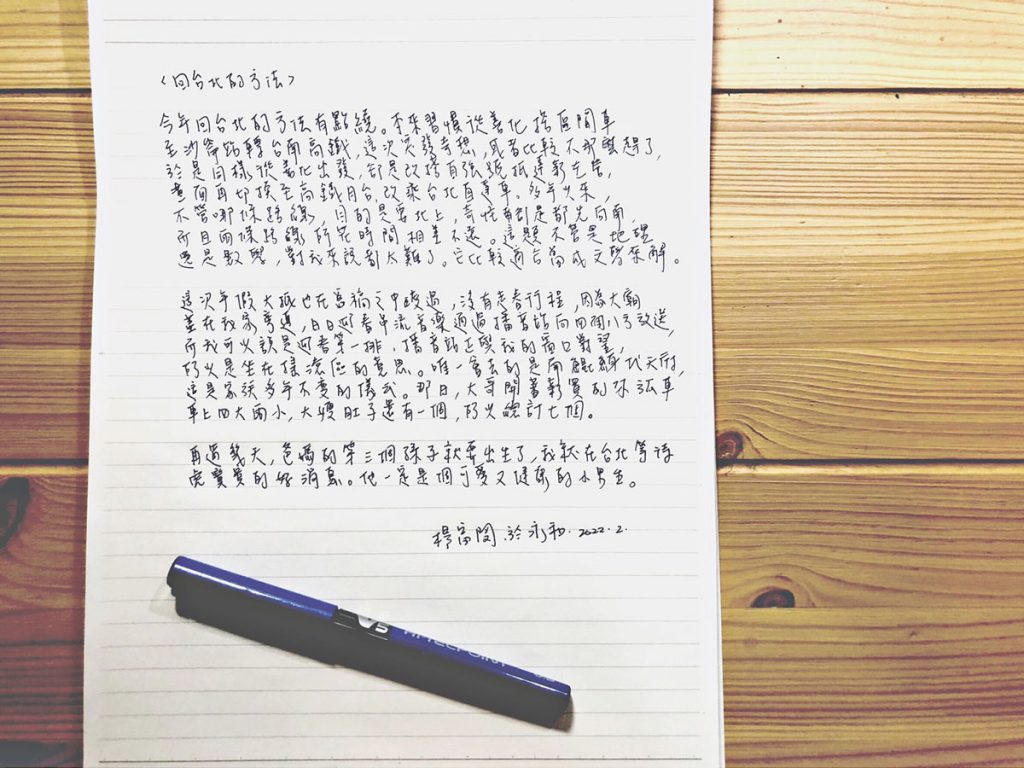 〈回台北的方法〉
今年回台北的方法有點繞。本來習慣從善化搭區間車
至沙崙站轉台南高鐵,這次突發奇想,或者比較不那麼趕了,
於是同樣從善化出發,卻是改搭自強號抵達新左營,
畫面再切換至高鐵月台,改乘台北直達車。多年以來,
不管哪條路線,目的是要北上,奇怪首部曲都是都先向南,
而且兩條路線所花時間相差不遠。這題不管是地理
還是數學,對我來說都太難了。它比較適合當成文學來解。
這次年假大抵也在寫稿之中度過,沒有走春行程,因為大廟
蓋在我家旁邊,日日迎春年流音樂通過播音站向四面八方放送,
而我可以說是迎春第一排,播音站正與我的窗口對望,
所以是生在搖滾區的意思。唯一會去的是南鯤鯓代天府,
這是家族多年不變的儀式。那日,大哥開著新買的休旅車
車上四大兩小,大嫂肚子還有一個,所以總計七個。
再過幾天,爸媽的第三個孫子就要出生了,我就在台北等待
虎寶寶的好消息。他一定是個可愛又健康的小男生。
楊富閔 於永和. 2022. 2.
V5
HI-TECPOINT